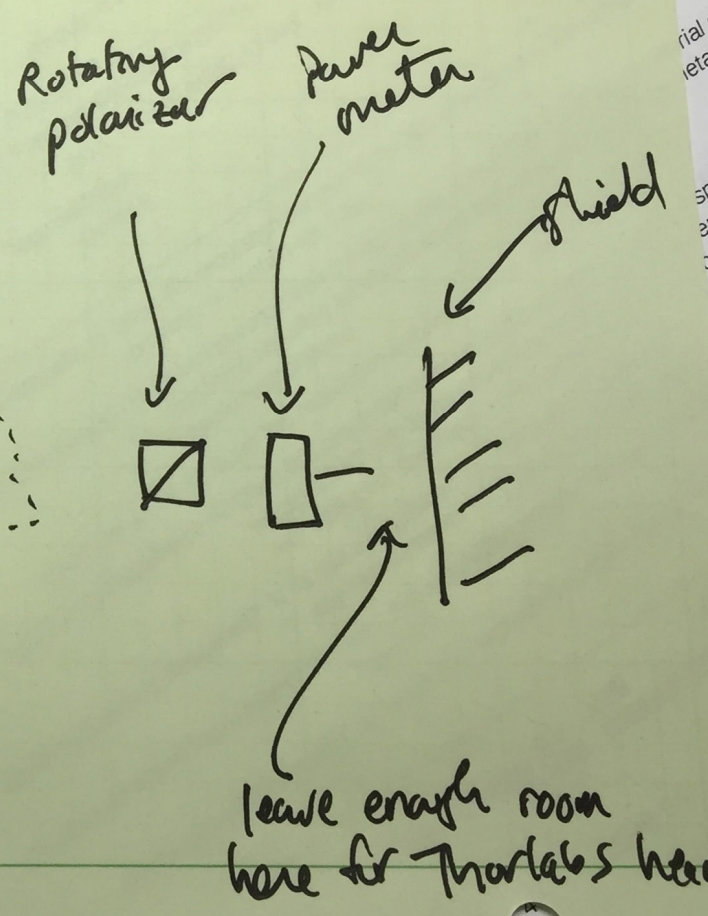 Rotating
polarizer
Power
meter
shield
leave enough room
here for Thorlabs hea
rial
eta
sp